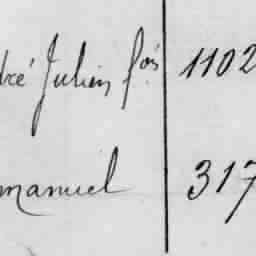 dré Julien f.ois 1102
manuel 317